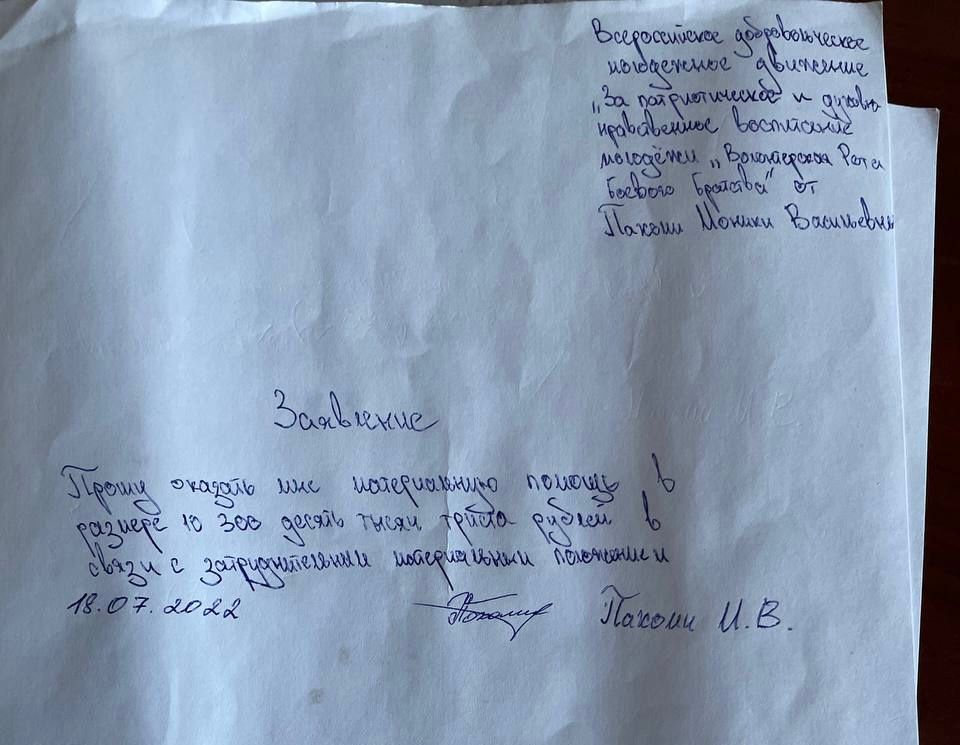 Всероссийское добровольческое
молодежное движение
„За патриотическое и духовно
нравственное воспитание
молодёжи „Волонтерская Рота
Боевого Братства" от
Пахоми Моники Васильевны
Заявление
Прошу оказать мне материальную помощь в
размере 10 300 десять тысяч триста рублей в
связи с затруднительным материальным положением
18.07.2022 Пахоми М.В.